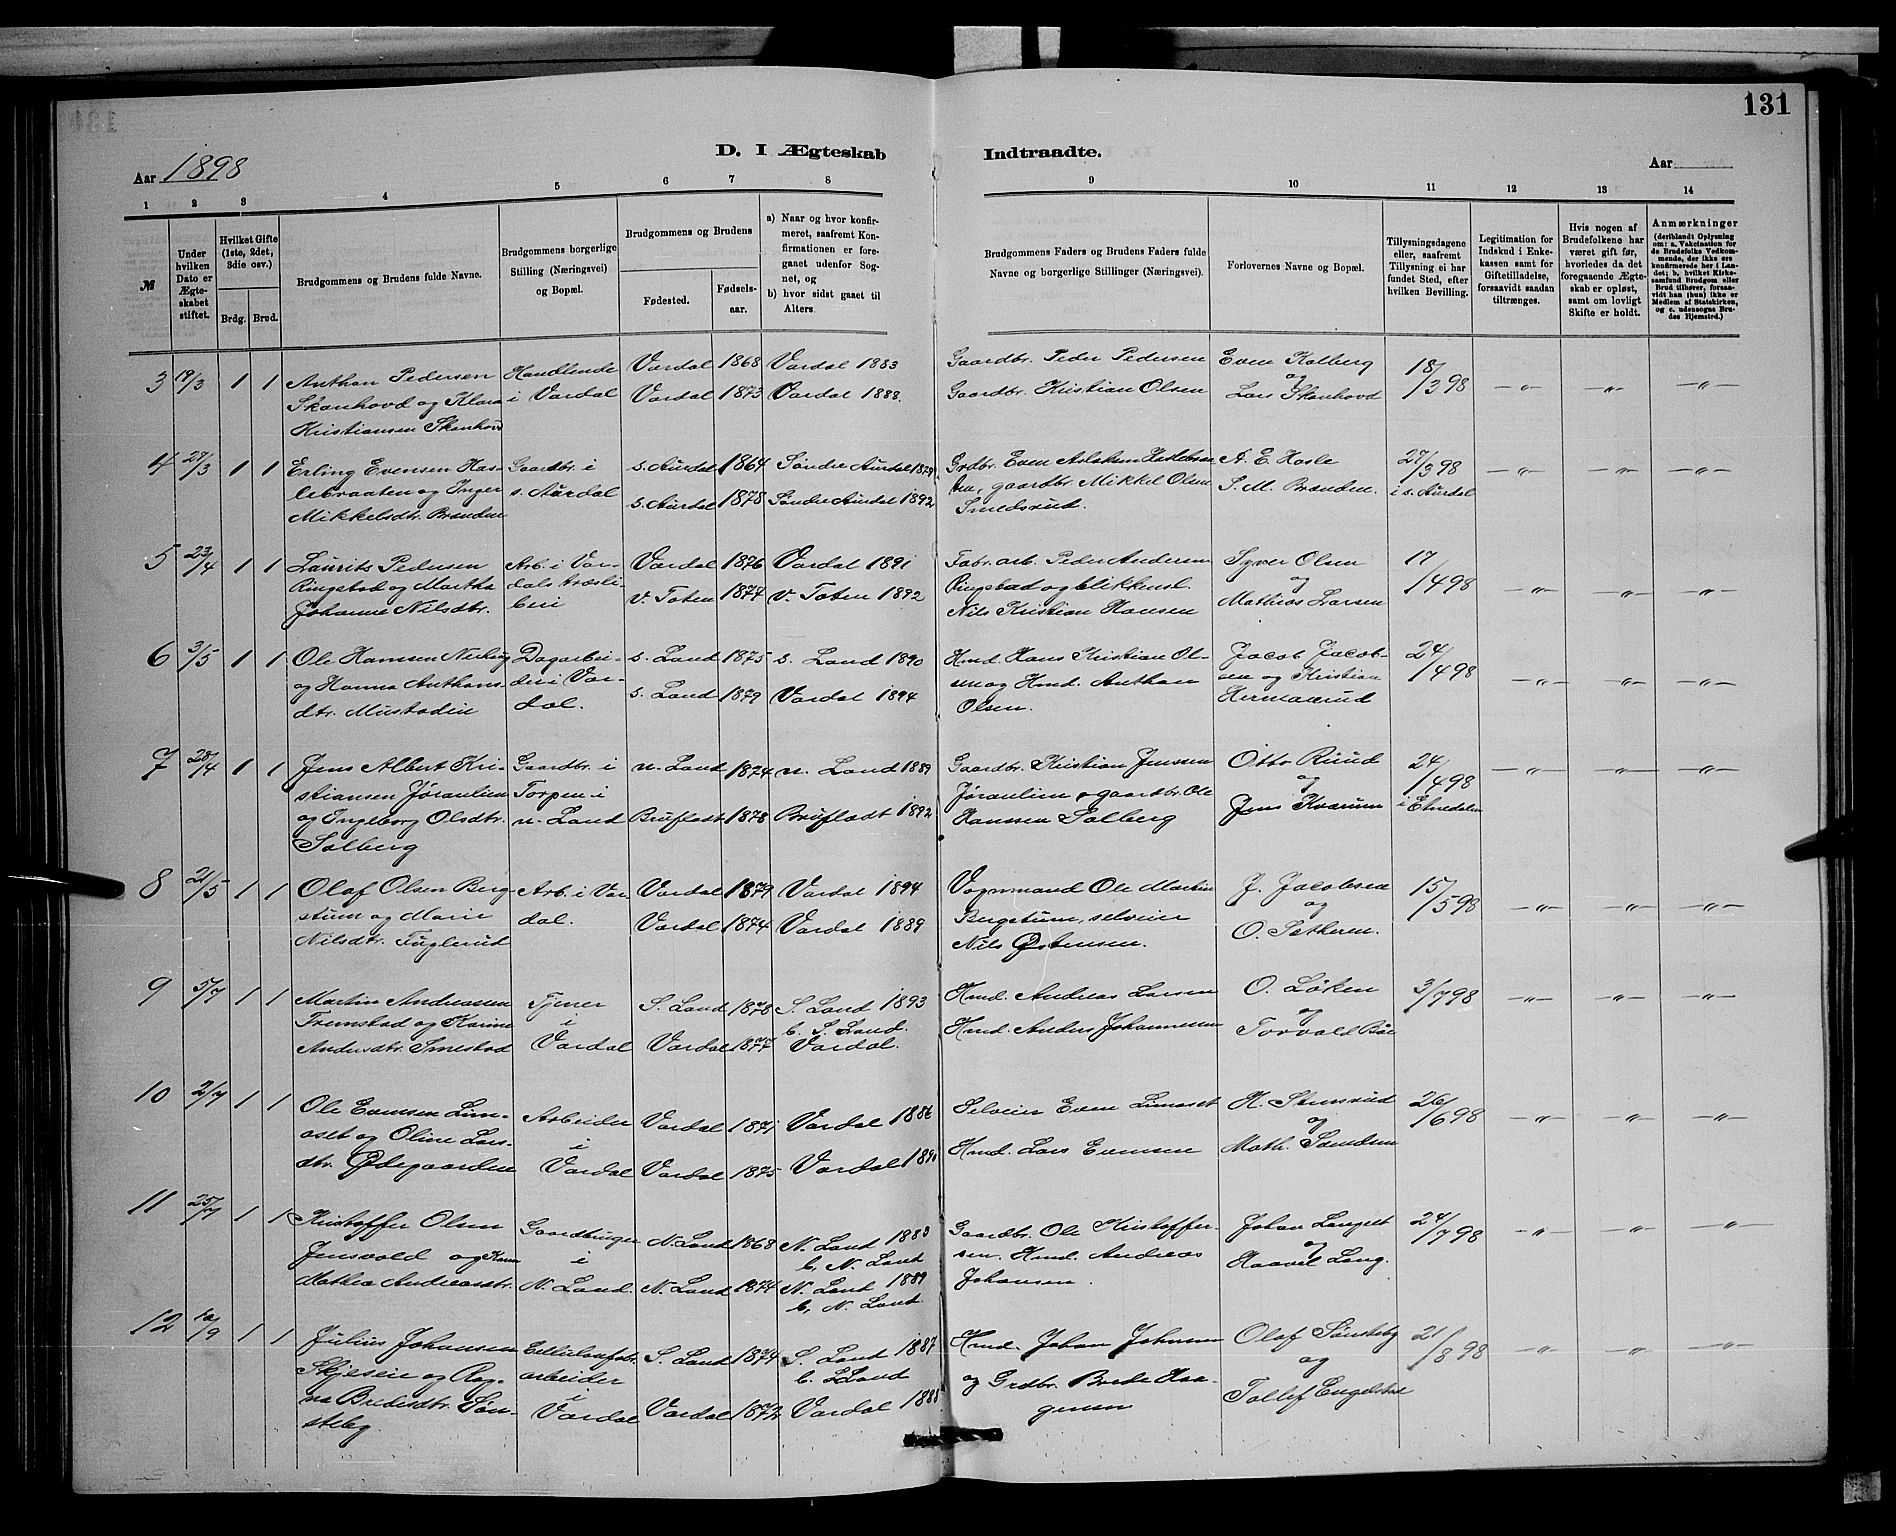 131
D. I Ægteskab Indtraadte.
Aar 1898 Aar
1 2 3 4 5 6 7 8 9 10 11 12 13 14
№
Under hvilken Dato er Ægteskabet stiftet.
Hvilket Gifte (1ste, 2det, 3die osv.)
Brdg. Brud.
Brudgommens og Brudens fulde Navne.
Brudgommens borgerlige Stilling (Næringsvei) og Bopæl.
Brudgommens og Brudens
Fødested. Fødselsaar.
a) Naar og hvor konfirmeret, saafremt Konfirmationen er foregaaet udenfor Sognet, og
b) hvor sidst gaaet til Alters.
Brudgommens Faders og Brudens Faders fulde Navne og borgerlige Stillinger (Næringsvei).
Forlovernes Navne og Bopæl.
Tillysningsdagene eller, saafremt Tillysning ei har fundet Sted, efter hvilken Bevilling.
Legitimation for Indskud i Enkekassen samt for Giftetilladelse, forsaavidt saadan tiltrænges.
Hvis nogen af Brudefolkene har været gift før, hvorledes da det foregaaende Ægteskab er opløst, samt om lovligt Skifte er holdt.
Anmærkninger
(deriblandt Oplysning om: a. Vakcination for de Brudefolks Vedkommende, der ikke ere konfirmerede her i Landet; b. hvilket Kirkesamfund Brudgom eller Brud tilhører, forsaavidt han (hun) ikke er Medlem af Statskirken, og c. udensogns Brudes Hjemsted.)
3 19/3 1 1 Anthon Pedersen Handlende Vardal 1868 Vardal 1883 Gaardbr. Peder Pedersen Even Kolberg 18/3 98 -"- -"- -"-
Skonhovd og Klara i Vardal Vardal 1873 Vardal 1888. Gaardbr. Kristian Olsen og
Kristiansen Skonhovd Lars Skonhovd
4 27/3 1 1 Erling Evensen Has- Gaardbr. i S. Aurdal 1864 Søndre Aurdal 1879 Grdbr. Even A. E. Hasle 27/3 98 -"- -"- -"-
lebraaten og Inger s. Aurdal S. Aurdal 1878 Søndre Aurdal 1892 gaardbr. Mikkel Olsen S. M. Branden. i s. Aurdal
Mikkelsdtr. Branden Smedsrud.
5 23/4 1 1 Laurits Pedersen Arb. i Var- Vardal 1876 Vardal 1891 Fabr. arb. Peder Andersen Syver Olsen 17/4 98 -"- -"- -"-
Ringstad og Martha dals træsli- V. Toten 1874 V. Toten 1892 Ringstad og blikkensl. og
Johanne Nilsdtr. beri Nils Kristian Hansen Mathias Larsen
6 3/5 1 1 Ole Hansen Dagarbei- S. Land 1875 S. Land 1890 Hmd. Hans Kristian Ol- Jacob Jacob- 24/4 98 -"- -"- -"-
og Hanna Anthons- der i Var- S. Land 1879 Vardal 1894 sen og Hmd. Anthon sen og Kristian
dtr. Mustadeie dal. Olsen.
7 28/4 1 1 Jens Albert Kri- Gaardbr. i N. Land 1874 N. Land 1889 Gaardbr. Kristian Jenssen Otto Ruud 24/4 98 -"- -"- -"-
stiansen Jøranlien Torpen i Bruflat 1878 Bruflodt 1892 Jøranlien, gaardbr. Ole og i Etnedalen
og Ingeborg Olsdtr. N. Land Hanssen Solberg Jens Kvarum
Solberg
8 21/5 1 1 Olaf Olsen Berg- Arb. i Var- Vardal 1879 Vardal 1894 Vognmand Ole Martin J. Jacobsen 15/5 98 -"- -"- -"-
stum og Marie dal. Vardal 1874 Vardal 1889 Bergstum, selveier og
Nilsdtr. Fuglerud Nils Østensen. O. Sætheren.
9 5/7 1 1 Martin Andreassen Tjener S. Land 1878 S. Land 1893 Hmd. Andreas Larsen O. Løken 3/7 98 -"- -"- -"-
Tremstad og Karine i b. S. Land. og
Andersdtr. Smestad Vardal Vardal 1877 Vardal. Hmd. Anders Johannesen Torvald Bøe
10 2/7 1 1 Ole Evensen Lim- Arbeider Vardal 1871 Vardal 1886 Selveier Even Limoset H. Stensrud 26/6 98 -"- -"- -"-
oset og Oline Lars- i og
dtr. Ødegaarden Vardal Vardal 1875 Vardal 1890 Hmd. Lars Evensen Math. Svendsen
11 25/7 1 1 Kristoffer Olsen Gaardbruger N. Land 1868 N. Land 1883 Gaardbr. Ole Kristoffer- Johan Langset 24/7 98 -"- -"- -"-
Jensvold og Karen i b. N. Land sen. Hmd. Andreas og
Mathea Andreasdtr. N. Land. N. Land 1874 N. Land 1889 Johansen. Haavel Lang.
b. N. Land.
12 10/9 1 1 Julius Johansen Cellulosefabr. S. Land 1874 S. Land 1887 Hmd. Johan Johnsen Olaf Sønsteby 21/8 98 -"- -"- -"-
Skjeseie og Rag- arbeider b. S. Land og Grdbr. Brede Haa- og
na Bredesdtr. Søn- i Vardal Vardal 1872 Vardal 1888 gensen Tollef Engelstad
steby.